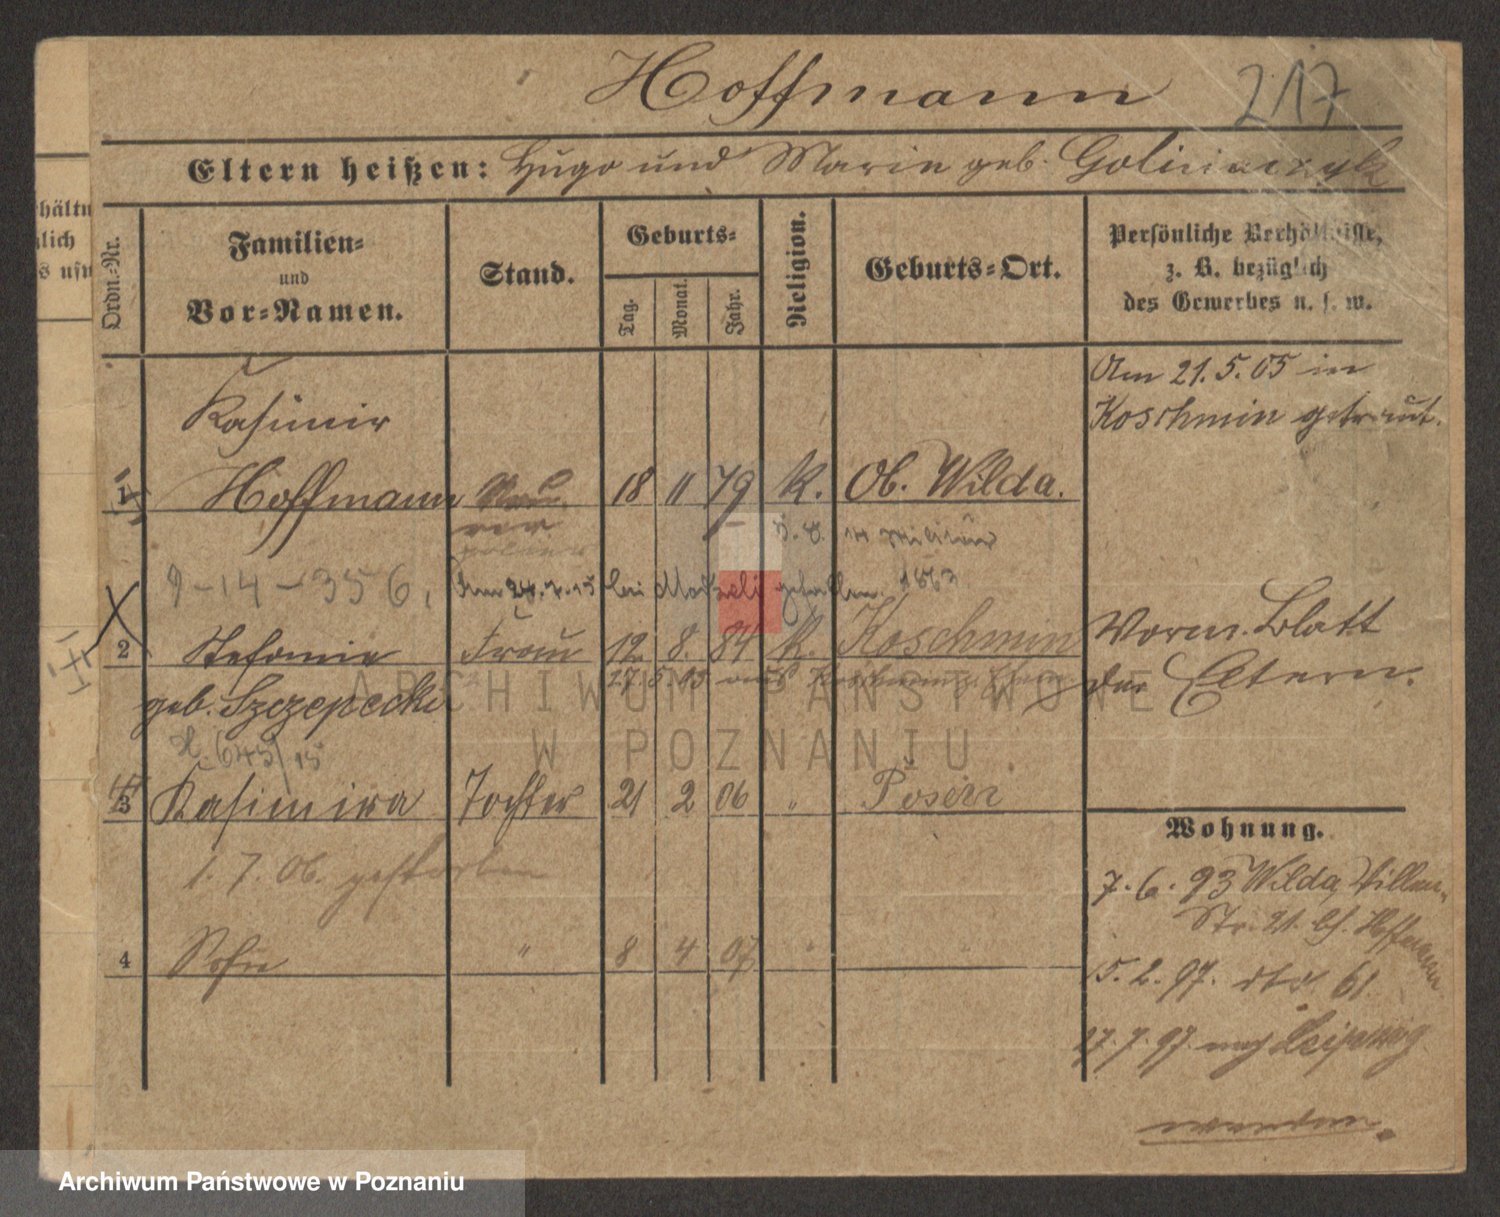 Hoffmann 217
Eltern heißen: Hugo und Marie geb. Golinierzyk
hältn
lich
s usw
Ordn.-Nr.
Familien-
und
Vor-Namen.
Stand.
Geburts-
Tag.
Monat.
Jahr.
Religion.
Geburts-Ort.
Persönliche Verhältnisse,
z. B. bezüglich
des Gewerbes u. s. w.
Am 21.5.05 in
Koschmin getraut.
Kasimir
1 Hoffmann 18 11 79 K. Ob. Wilda.
z. Militär
9-14-356, Am 24.7.15 bei gefallen 1863
2 Stefanie Frau 12. 8. 84 K. Koschmin
geb. Szczepecki
Vorm. Blatt
der Eltern.
645/15
3 Kasimira Tochter 21 2 06 " Posen
1. 7. 06. gestorben
4 Sofie " 8 4 07 "
Wohnung.
7. 6. 93 Wilda, Villen-
Str. 21. b/ Hoffmann
15. 2. 97. dto. 61
27. 7. 97 nach Leipzig
ARCHIWUM PAŃSTWOWE
W POZNANIU
Archiwum Państwowe w Poznaniu